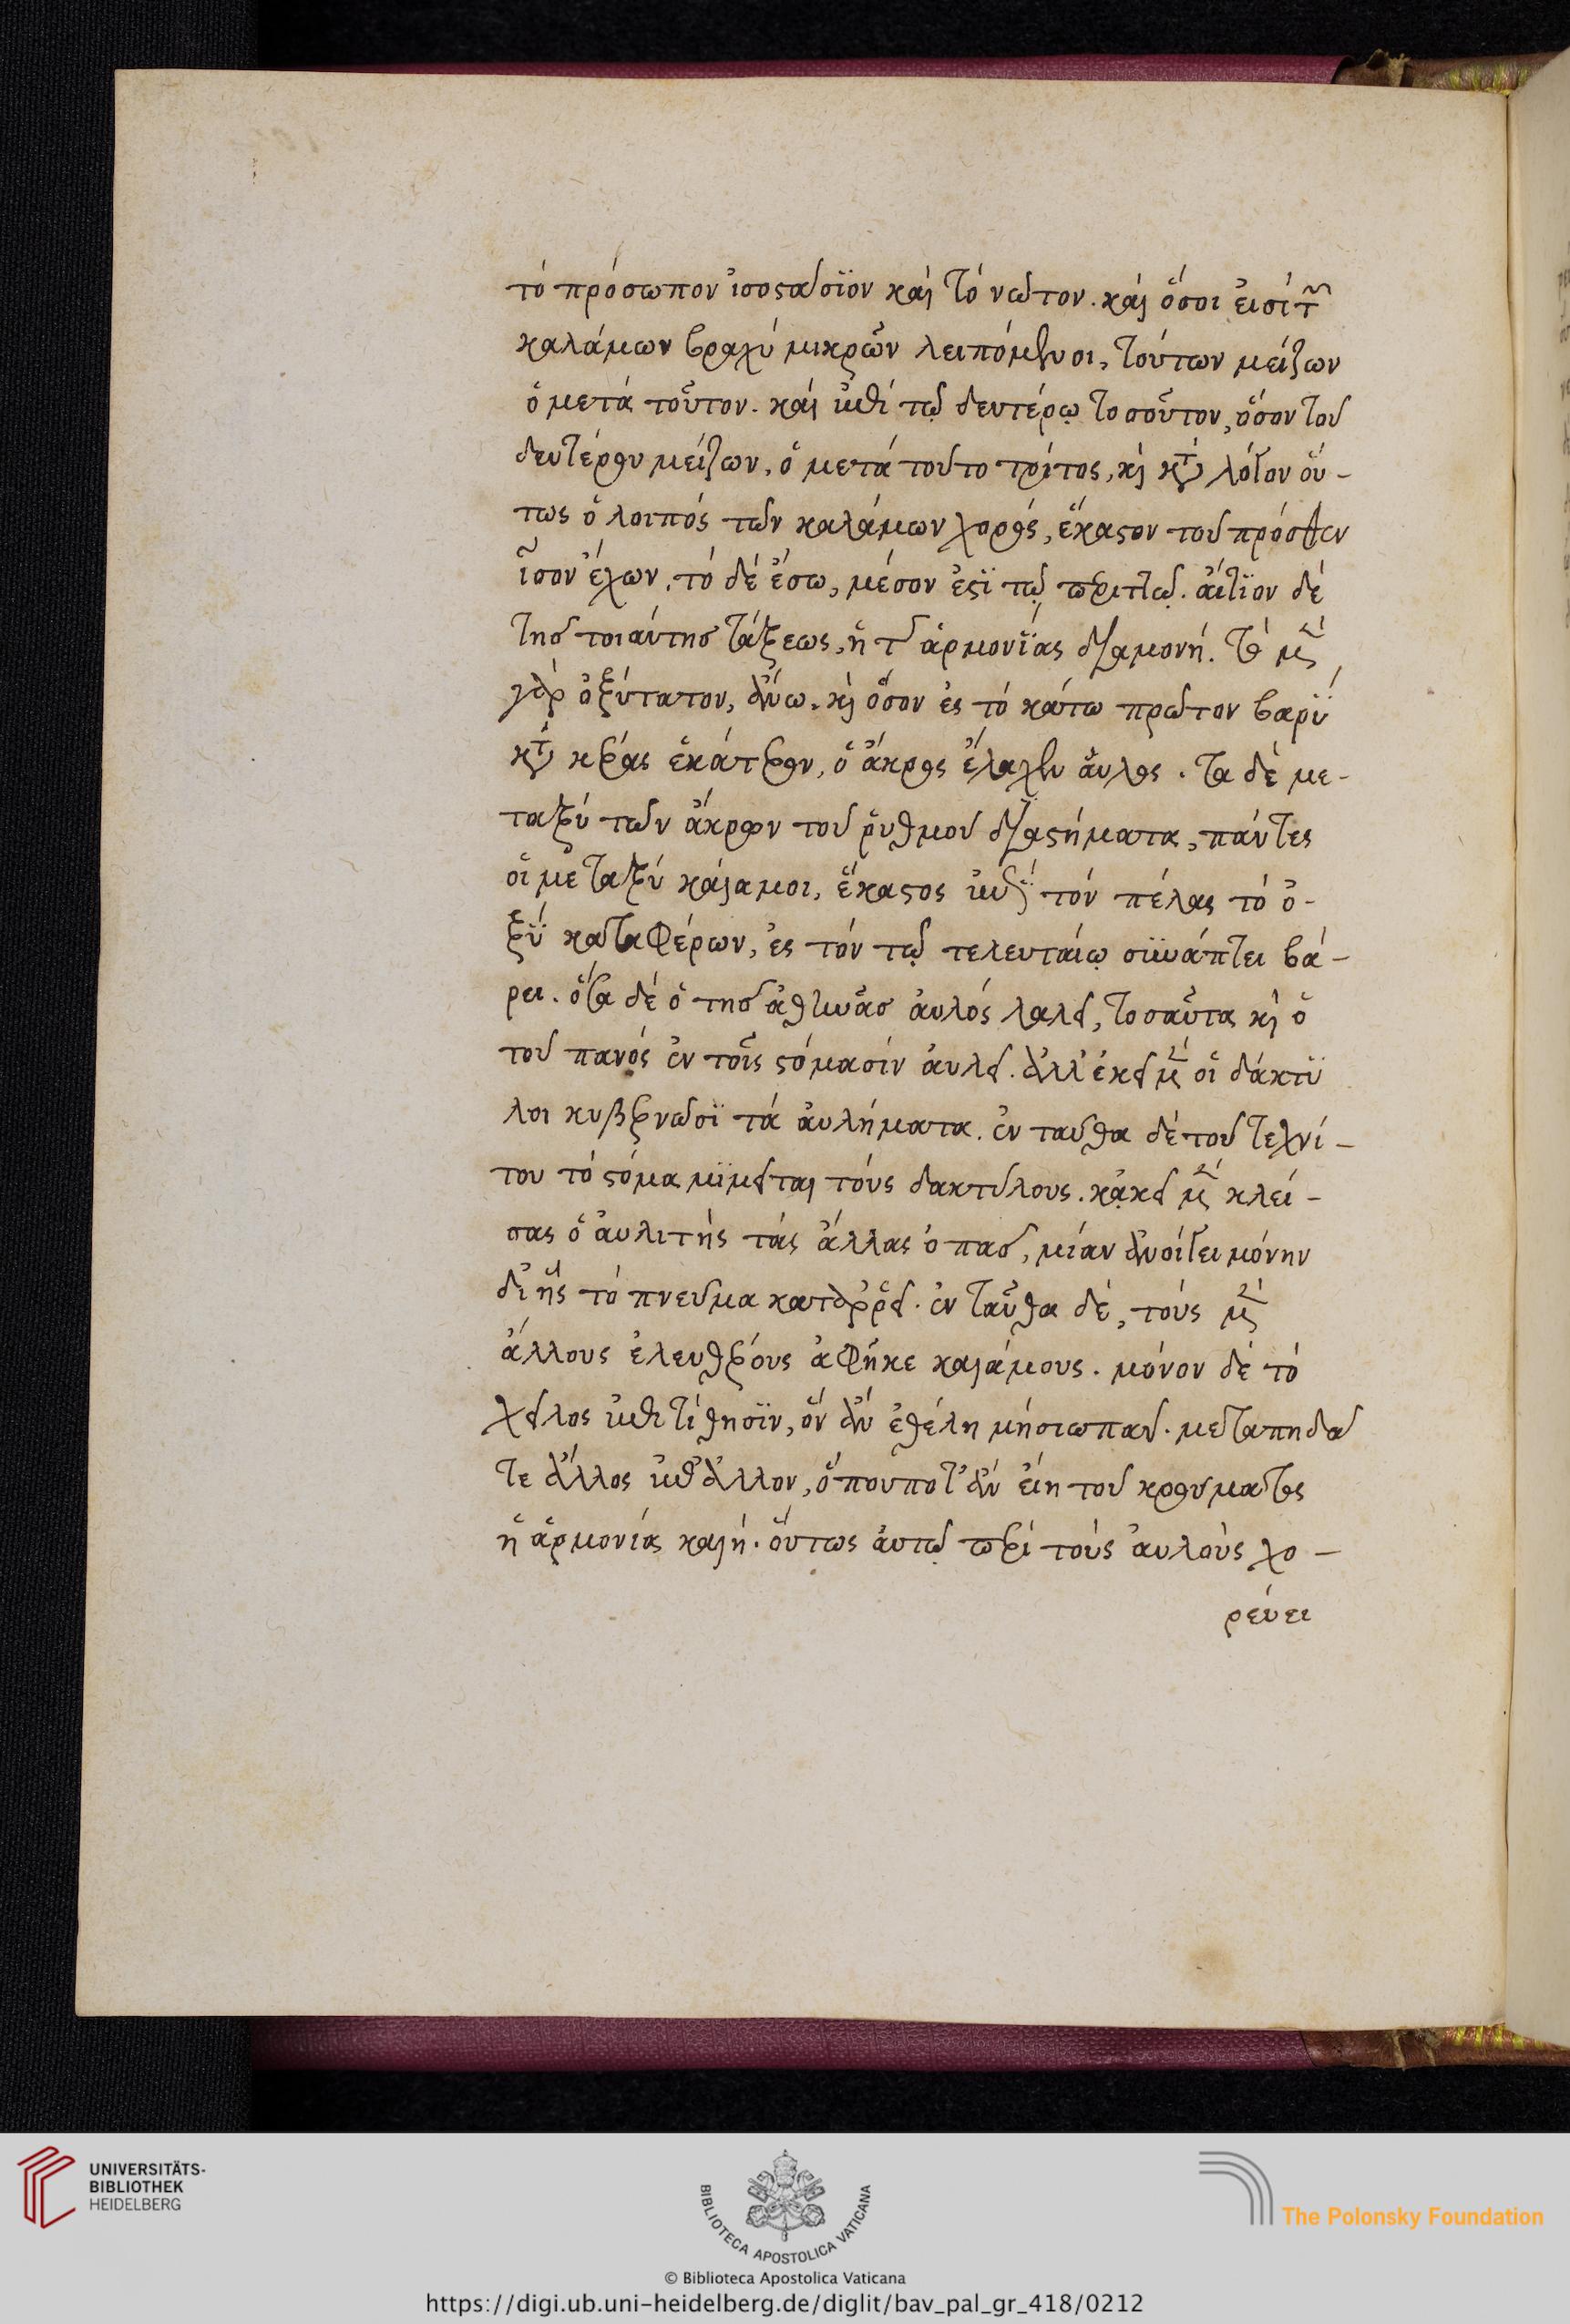 τὸ πρόσωπον ἰσοστάσϊον καὶ τὸ νῶτον. καὶ ὅσοι εἰσὶ τῶν
καλάμων βραχὺ μικρῶν λειπόμενοι, τούτων μείζων
ὁ μετὰ τοῦτον. καὶ ἐπὶ τῷ δευτέρῳ τοσοῦτον, ὅσον τοῦ
δευτέρου μείζων, ὁ μετὰ τοῦτο τρίτος, καὶ κατὰ λόγον οὕ-
τως ὁ λοιπὸς τῶν καλάμων χορὸς, ἕκαστον τοῦ πρόσθεν
ἶσον ἔχων. τὸ δὲ ἔσω, μέσον ἐστὶ τῷ περιττῷ. αἴτϊον δὲ
τῆς τοιαύτης τάξεως, ἡ τῆς ἁρμονΐας διαμονή. τὸ μὲν
γὰρ ὀξύτατον, ἄνω. καὶ ὅσον ἐς τὸ κάτω πρῶτον βαρὺ
κατὰ κέρας ἑκάτερον, ὁ ἄκρος ἔλαχεν αὐλος. τα δὲ με-
ταξὺ τῶν ἄκρων τοῦ ῥυθμοῦ διαστήματα, πάντες
οἱ μεταξὺ κάλαμοι, ἕκαστος ἐπὶ τὸν πέλας τὸ ὀ-
ξὺ καταφέρων, ἐς τὸν τῷ τελευταίῳ συνάπτει βά-
ρει. ὅσα δὲ ὁ τῆς ἀθηνᾶς αὐλὸς λαλεῖ, τοσαῦτα καὶ ὁ
τοῦ πανὸς ἐν τοῖς στόμασιν αὐλεῖ. ἀλλ' ἐκεῖ μὲν οἱ δάκτυ
λοι κυβερνῶσϊ τὰ αὐλήματα. ἐν ταῦθα δὲ τοῦ τεχνί-
του τὸ στόμα μϊμεῖται τοὺς δακτύλους. κἀκεῖ μὲν κλεί-
σας ὁ αὐλιτὴς τὰς ἄλλας ὀπὰς, μίαν ἀνοίγει μόνην
δι' ἧς τὸ πνεῦμα καταρρεῖ. ἐν ταῦθα δὲ, τοὺς μὲν
ἄλλους ἐλευθέρους ἀφῆκε καλάμους. μόνον δὲ τὸ
χεῖλος ἐπιτίθησϊν, ὃν ἂν ἐθέλη μὴ σιωπᾶν. μεταπηδᾶ
τε ἄλλος ἐπ' ἄλλον, ὅπου ποτ' ἂν εἴη τοῦ κρούματος
ἡ ἁρμονία καλή. οὕτως αὐτῷ περὶ τοὺς αὐλοὺς χο-
ρεύει
UNIVERSITÄTS-
BIBLIOTHEK
HEIDELBERG
BIBLIOTECA APOSTOLICA VATICANA
The Polonsky Foundation
© Biblioteca Apostolica Vaticana
https://digi.ub.uni-heidelberg.de/diglit/bav_pal_gr_418/0212